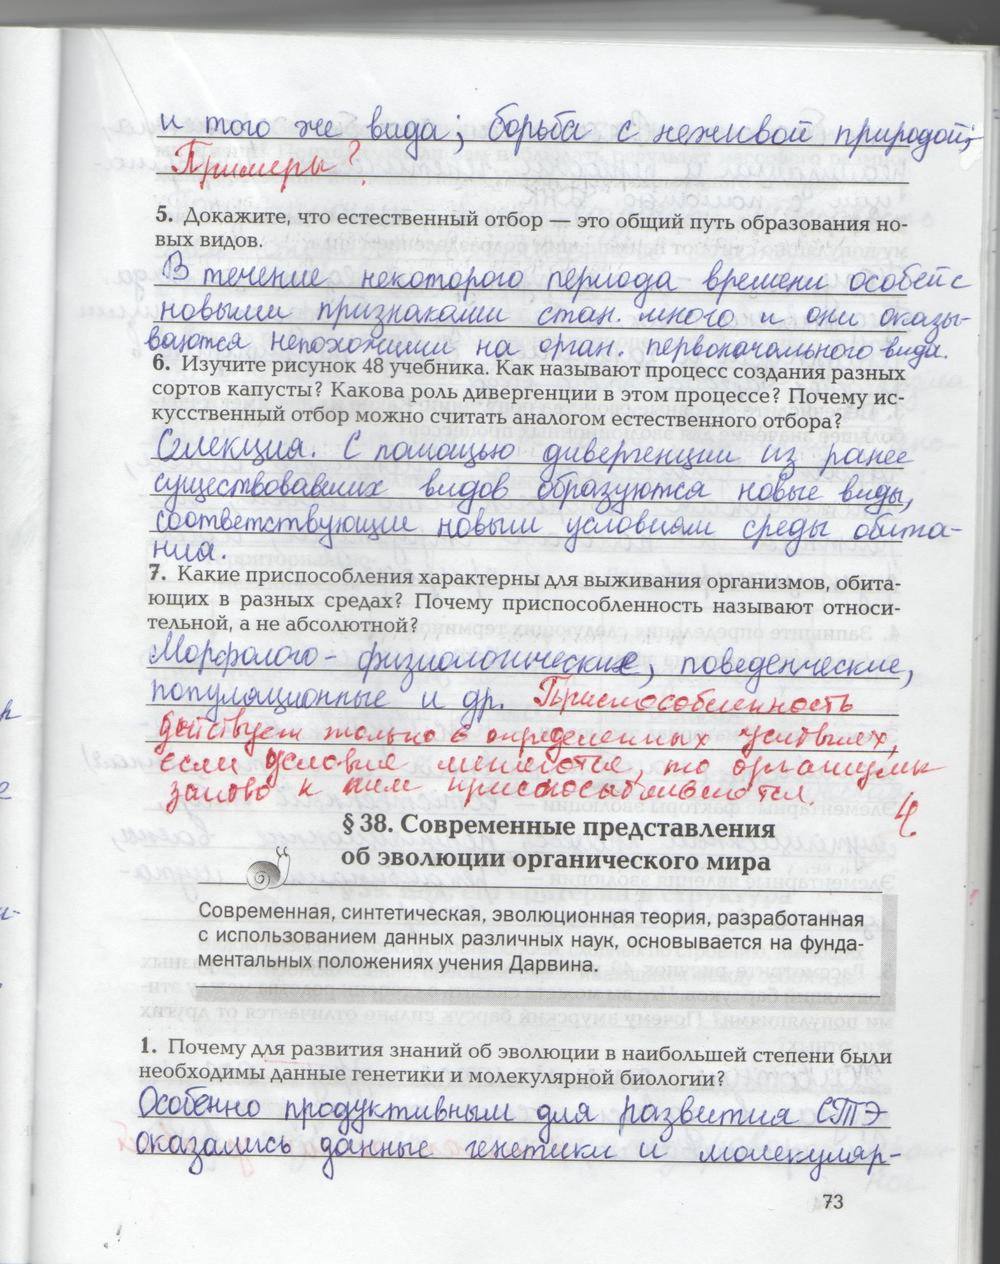 и того же вида; борьба с неживой природой;
Примеры?
5. Докажите, что естественный отбор — это общий путь образования но-
вых видов.
В течение некоторого периода времени особей с
новыми признаками стан. много и они оказы-
ваются непохожими на орган. первоначального вида.
6. Изучите рисунок 48 учебника. Как называют процесс создания разных
сортов капусты? Какова роль дивергенции в этом процессе? Почему ис-
кусственный отбор можно считать аналогом естественного отбора?
Селекция. С помощью дивергенции из ранее
существовавших видов образуются новые виды,
соответствующие новым условиям среды обита-
ния.
7. Какие приспособления характерны для выживания организмов, обита-
ющих в разных средах? Почему приспособленность называют относи-
тельной, а не абсолютной?
Морфолого-физиологические, поведенческие,
популяционные и др. Приспособленность
действует только в определенных условиях,
если условия меняются, то организмы
заново к ним приспосабливаются.
4
§ 38. Современные представления
об эволюции органического мира
Современная, синтетическая, эволюционная теория, разработанная
с использованием данных различных наук, основывается на фунда-
ментальных положениях учения Дарвина.
1. Почему для развития знаний об эволюции в наибольшей степени были
необходимы данные генетики и молекулярной биологии?
Особенно продуктивным для развития СТЭ
оказались данные генетики и молекуляр-
73